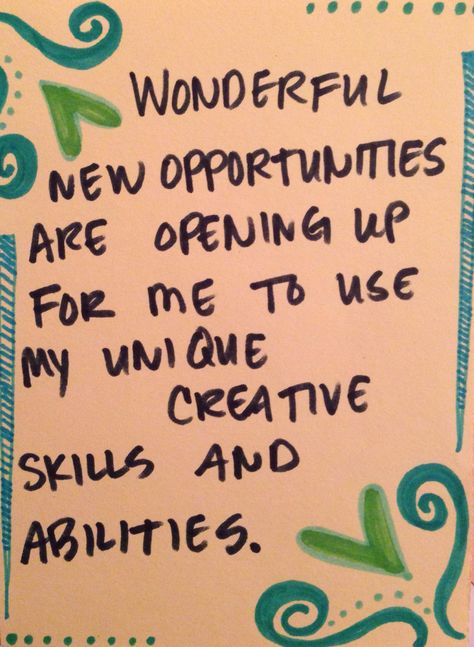 WONDERFUL
NEW OPPORTUNITIES
ARE OPENING UP
FOR ME TO USE
MY UNIQUE
CREATIVE
SKILLS AND
ABILITIES.